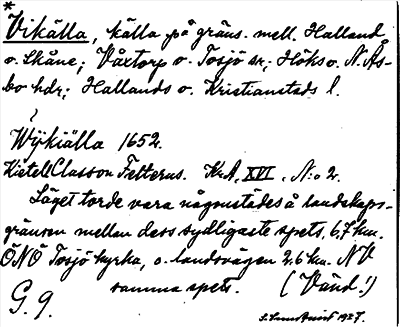 *
Vikälla, källa på gräns. mell. Halland
o. Skåne; Våxtorp o. Tosjö sr; Höks o. N. Ås-
bo hdr; Hallands o. Kristianstads l.
Wÿkiälla 1652.
Kietell Classon Felterus. KrA, XVI, N:o 2.
Läget torde vara någonstädes å landskaps-
gränsen mellan dess sydligaste spets, 6,7 km.
ÖNÖ Tosjö kyrka, o. landsvägen 2.6 km. NV
samma spets. (Vänd!)
G. 9. 1927.